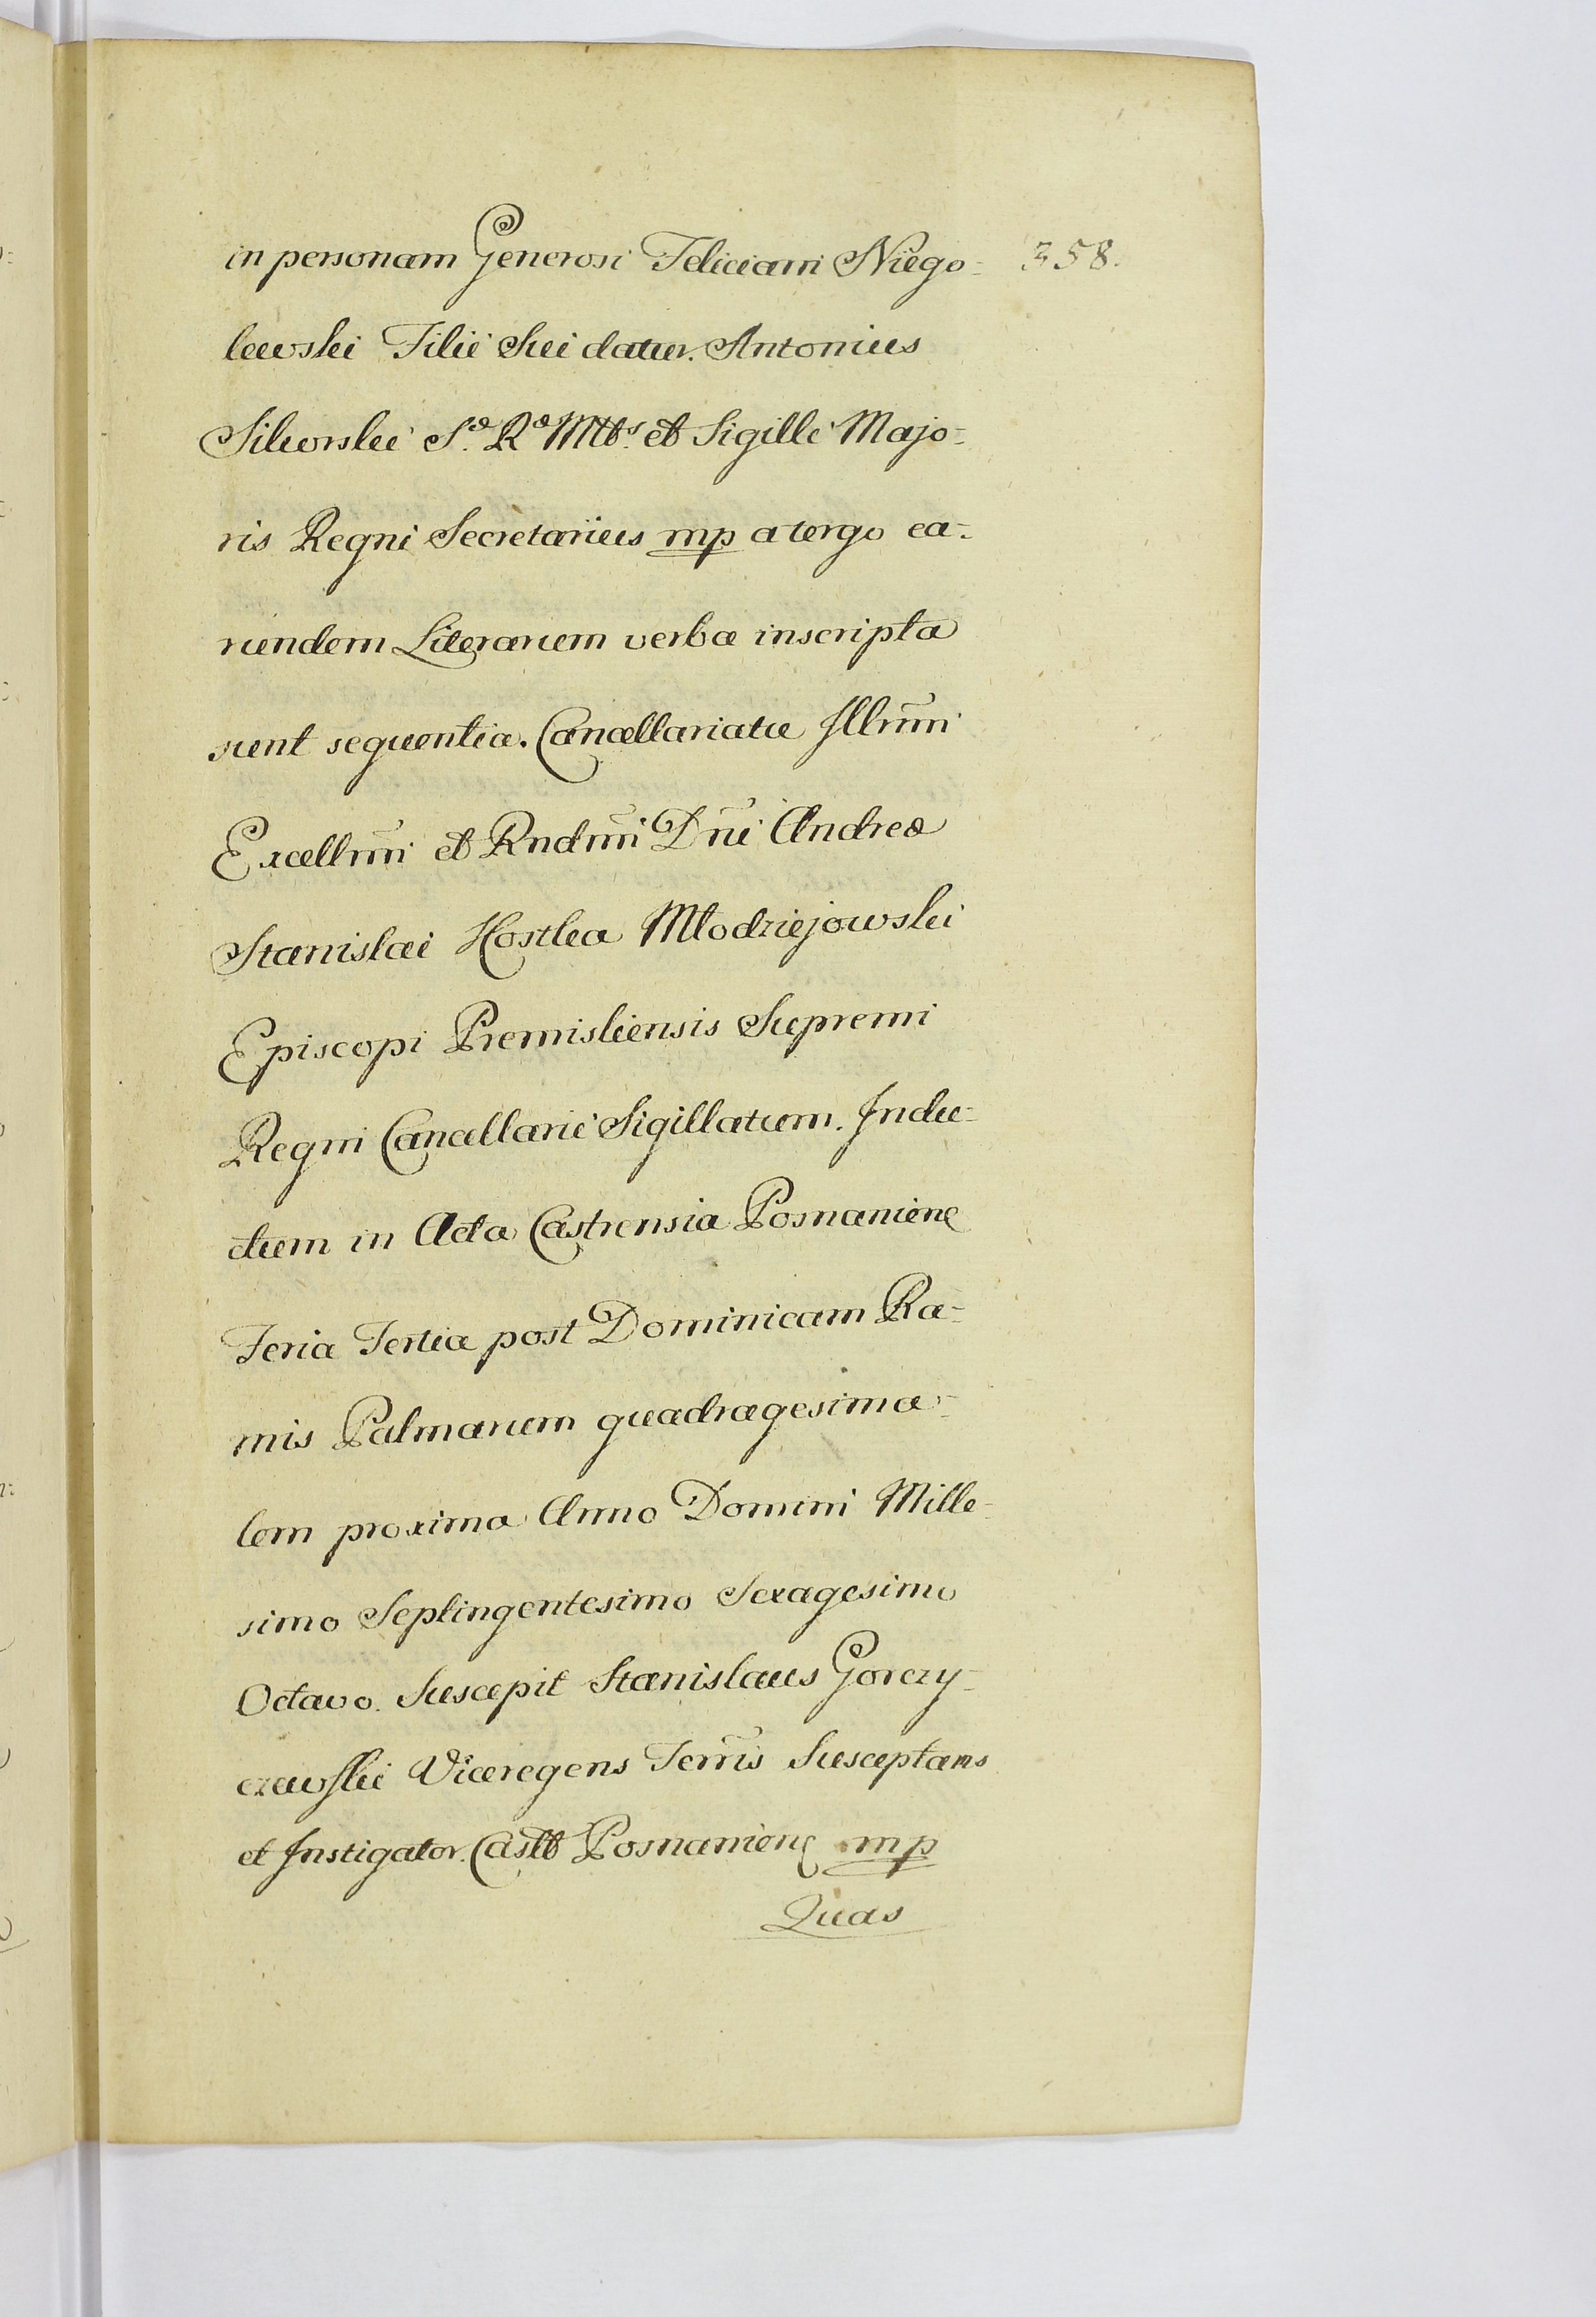 in personam Generosi Feliciani Niego- 358.
lewski Filii Sui datur. Antonius
Sikorski S.ᵃ R.ᵃ Mttˢ. et Sigilli Majo-
ris Regni Secretarius mp a tergo ea-
rundem Literarum verba inscripta
sunt sequentia. Cancellariatu Illrmi
Excellmi et Rndmi Dni Andreæ
Stanislai Kostka Młodziejowski
Episcopi Premisliensis Supremi
Regni Cancellarii Sigillatum. Indu-
ctum in Acta Castrensia Posnanienc
Feria Tertia post Dominicam Ra-
mis Palmarum quadragesima-
lem proxima Anno Domini Mille-
simo Septingentesimo Sexagesimo
Octavo. Suscepit Stanislaus Gorczy-
czewski Viceregens Terris Susceptans
et Instigator. Castt Posnanienc mp
Quas